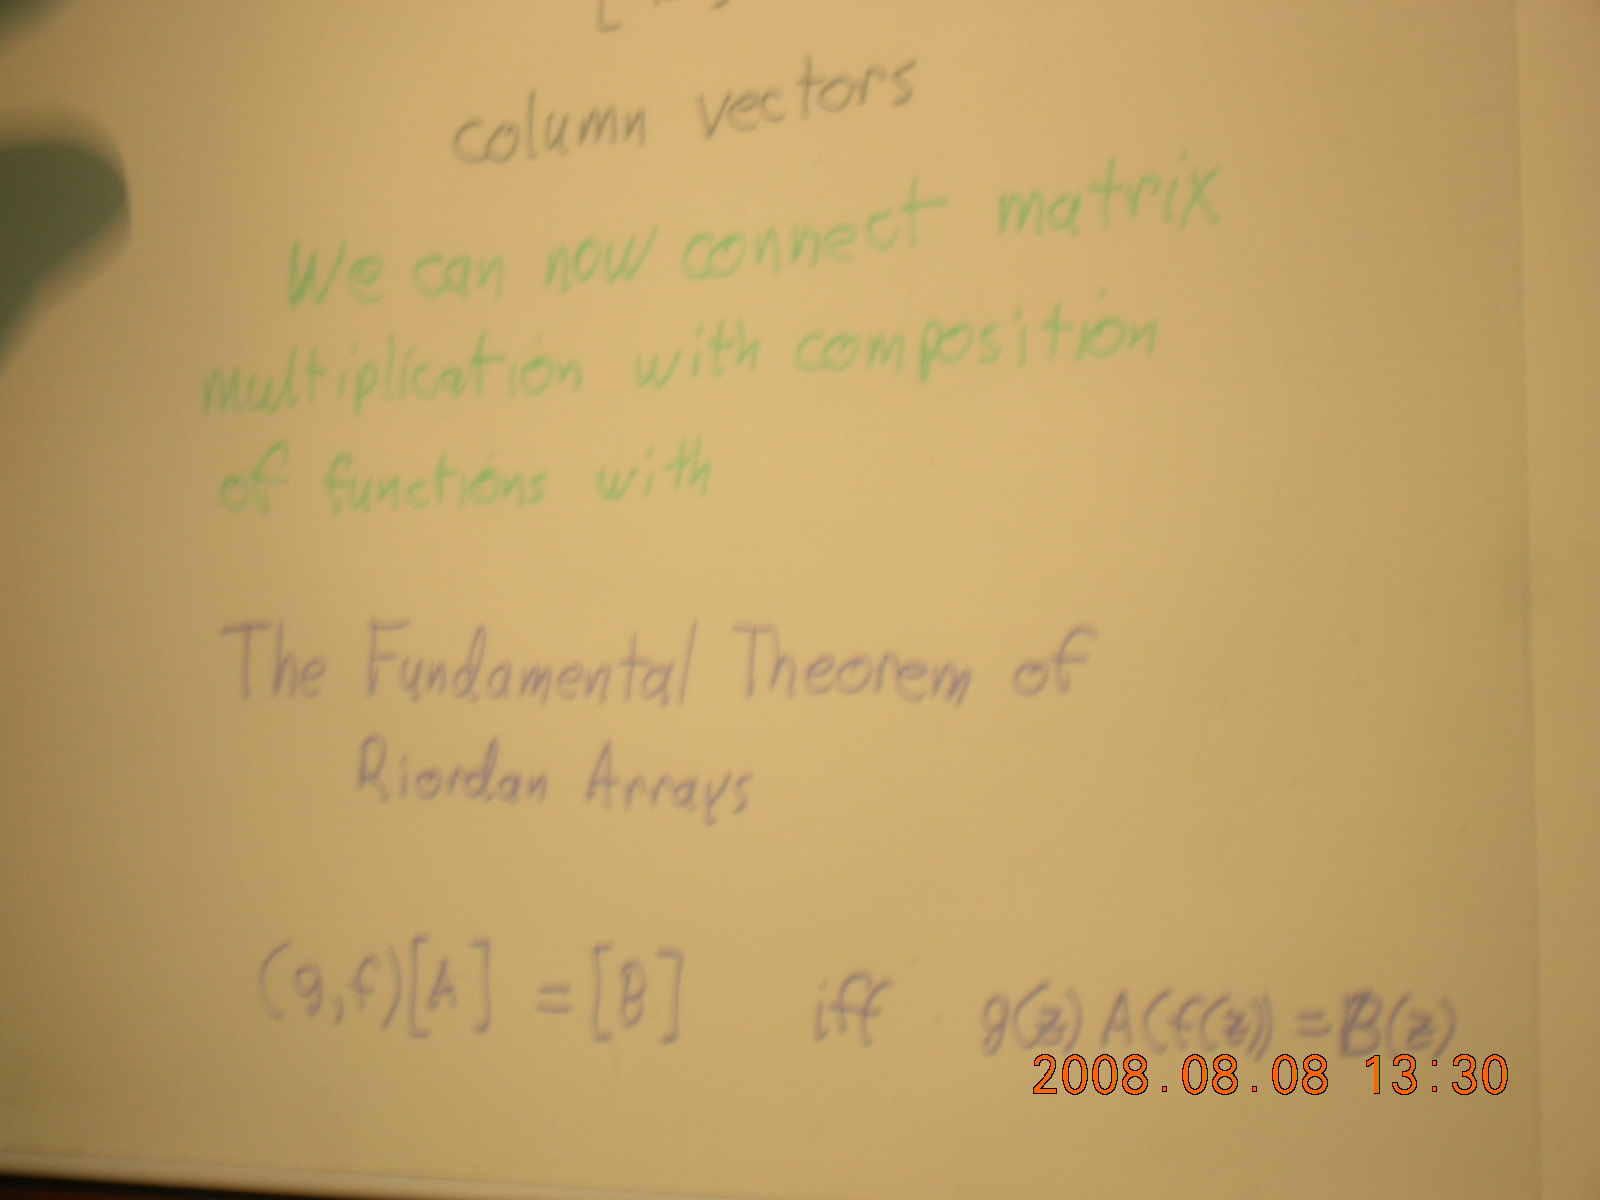 column vectors
We can now connect matrix
multiplication with composition
of functions with
The Fundamental Theorem of
Riordan Arrays
(g,f)[A] = [B] iff g(z) A(f(z)) = B(z)
2008.08.08 13:30